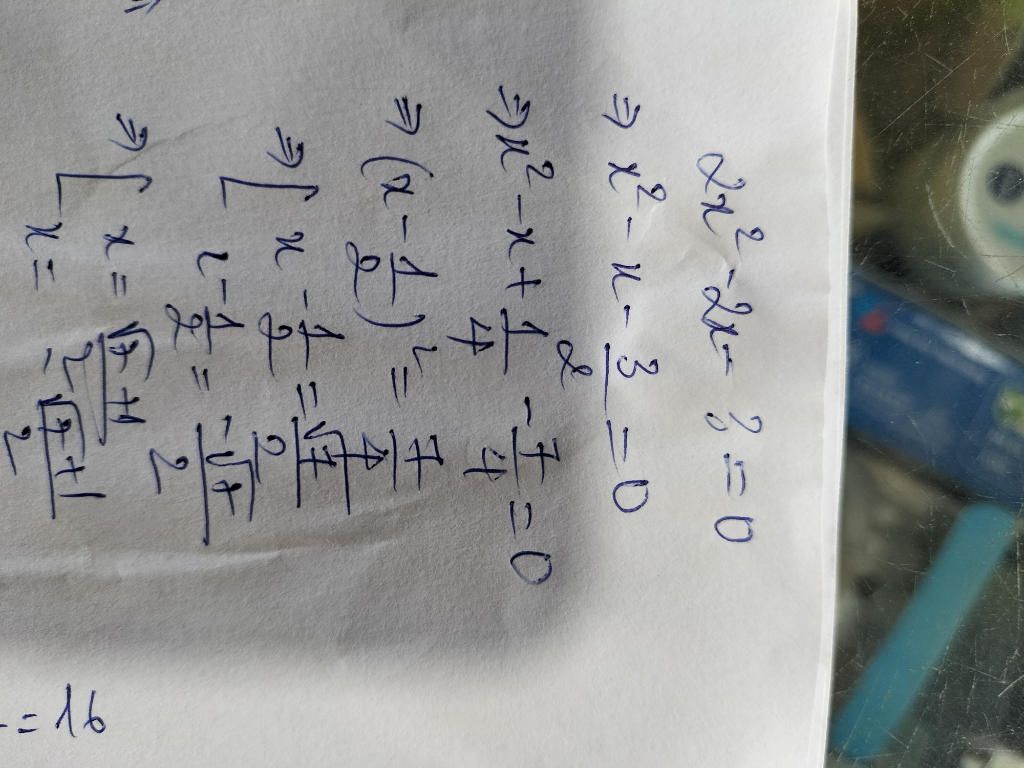 2x² - 2x - 3 = 0
⇒ x² - x - 3/2 = 0
⇒ x² - x + 1/4 - 7/4 = 0
⇒ (x - 1/2)² = 7/4
⇒ [ x - 1/2 = √7/2
x - 1/2 = -√7/2
⇒ [ x = √7+1/2
x = -√7+1/2
= 16